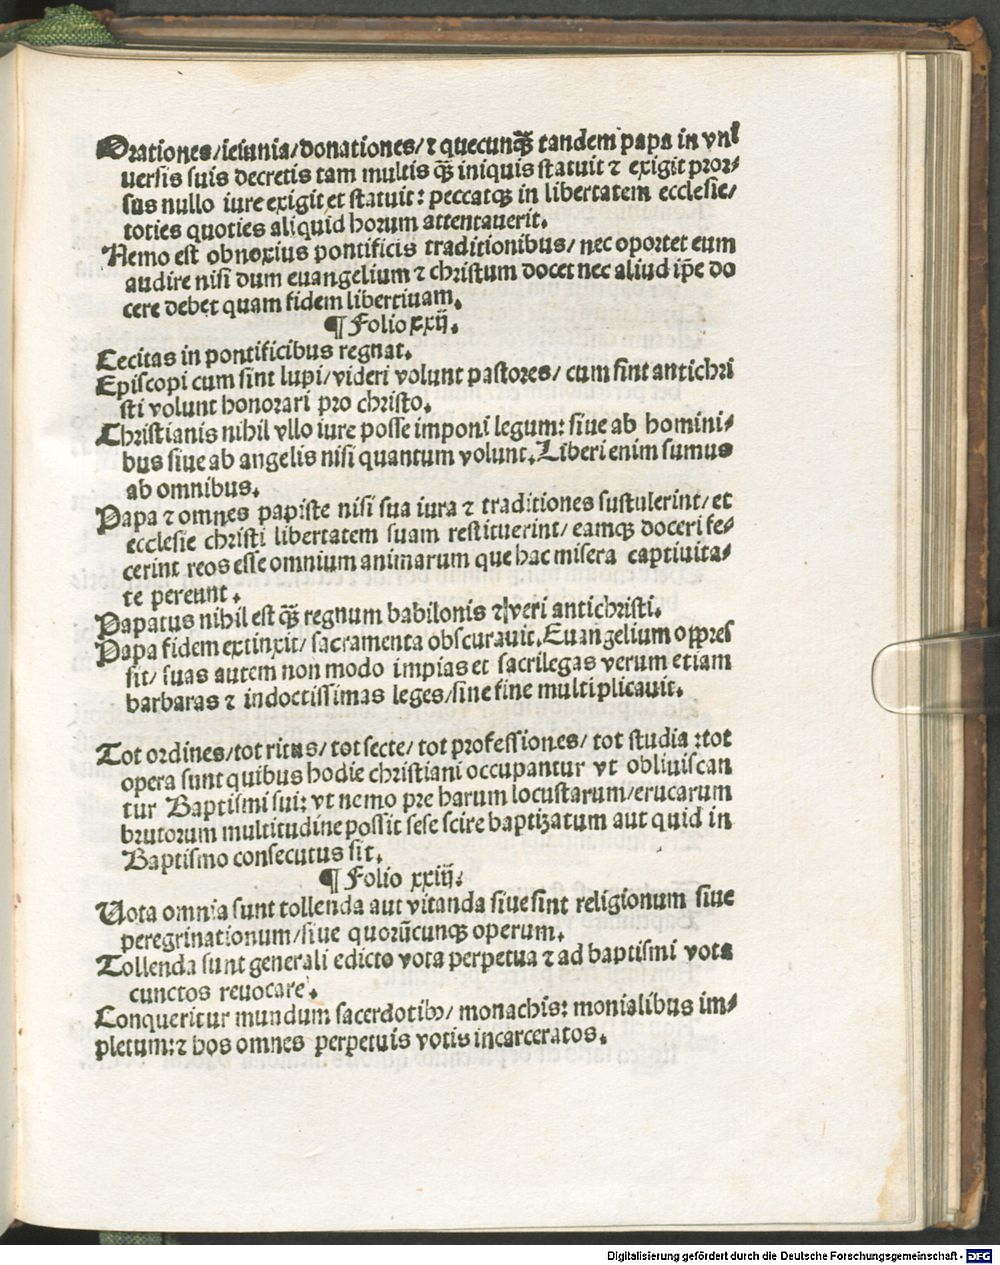 Orationes/ieiunia/donationes/⁊ quecunqꝫ tandem papa in vni
uersis suis decretis tam multis qꝫ̃ iniquis statuit ⁊ exigit pror⸗
sus nullo iure exigit et statuit: peccatqꝫ in libertatem ecclesie/
toties quoties aliquid horum attentauerit.
Nemo est obnoxius pontificis traditionibus/ nec oportet eum
audire nisi dum euangelium ⁊ christum docet nec aliud ip̃e do
cere debet quam fidem libertiuam.
¶ Folio xxij.
Cecitas in pontificibus regnat.
Episcopi cum sint lupi/videri volunt pastores/ cum sint antichri
sti volunt honorari pro christo.
Christianis nihil vllo iure posse imponi legum: siue ab homini⸗
bus siue ab angelis nisi quantum volunt. Liberi enim sumus
ab omnibus.
Papa ⁊ omnes papiste nisi sua iura ⁊ traditiones sustulerint/ et
ecclesie christi libertatem suam restituerint/ eamqꝫ doceri fe⸗
cerint reos esse omnium animarum que hac misera captiuita⸗
te pereunt.
Papatus nihil est qꝫ̃ regnum babilonis ⁊ veri antichristi.
Papa fidem extinxit/ sacramenta obscurauit. Euangelium oppres
sit/ suas autem non modo impias et sacrilegas verum etiam
barbaras ⁊ indoctissimas leges/sine fine multiplicauit.
Tot ordines/tot ritus/ tot secte/ tot professiones/ tot studia :tot
opera sunt quibus hodie christiani occupantur vt obliuiscan
tur Baptismi sui: vt nemo pre harum locustarum/erucarum
brutorum multitudine possit sese scire baptizatum aut quid in
Baptismo consecutus sit.
¶ Folio xxiij.
Vota omnia sunt tollenda aut vitanda siue sint religionum siue
peregrinationum/siue quorũcunqꝫ operum.
Tollenda sunt generali edicto vota perpetua ⁊ ad baptismi vota
cunctos reuocare.
Conqueritur mundum sacerdotibꝰ/ monachis: monialibus im⸗
pletum:⁊ hos omnes perpetuis votis incarceratos.
Digitalisierung gefördert durch die Deutsche Forschungsgemeinschaft - DFG